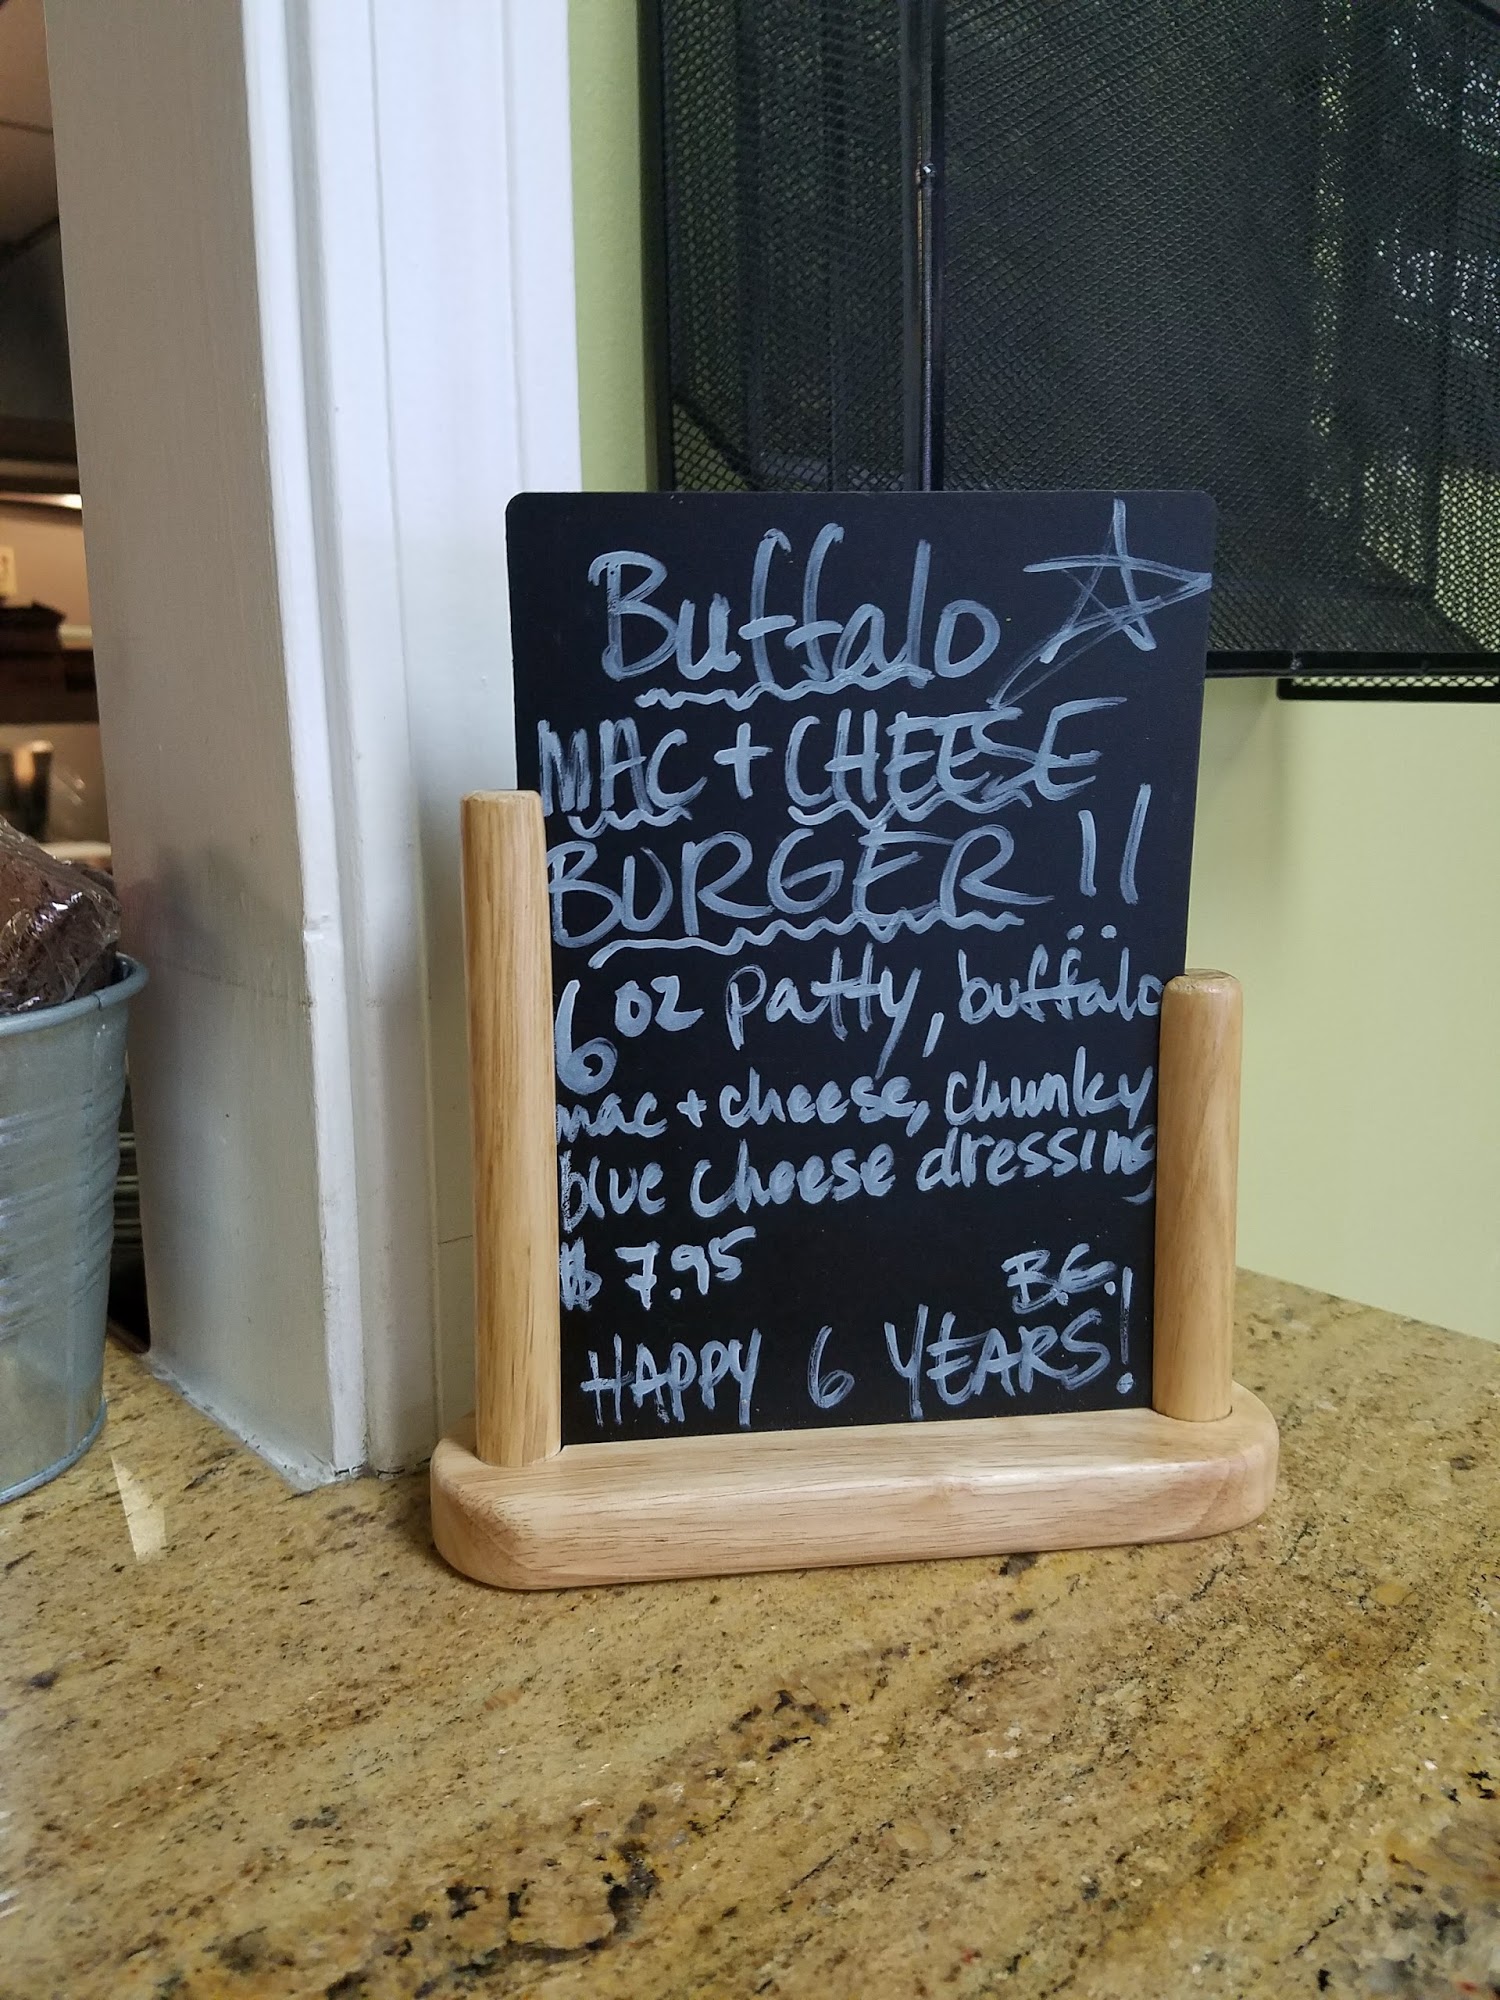 Buffalo
MAC + CHEESE
BURGER!!
6 oz patty, buffalo
mac + cheese, chunky
blue cheese dressing
$ 7.95
B.E.
HAPPY 6 YEARS!